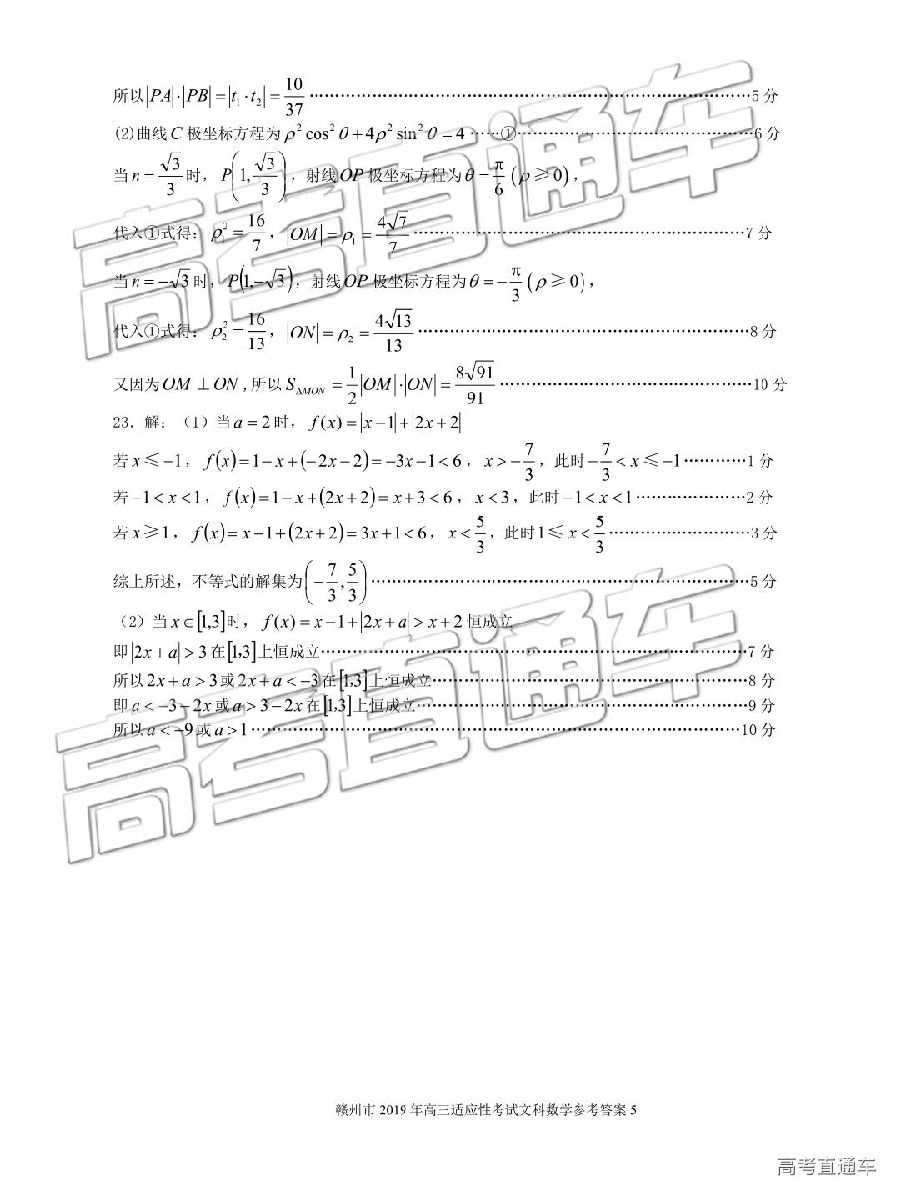 所以|PA|·|PB|=|t₁·t₂|=10/37 ……5分
(2)曲线C极坐标方程为ρ²cos²θ+4ρ²sin²θ=4……①……6分
当n=√3/3时，P(1,√3/3)，射线OP极坐标方程为θ=π/6(ρ≥0)，
代入①式得：ρ₁²=16/7，|OM|=ρ₁=4√7/7……7分
当n=-√3时，P(1,-√3)，射线OP极坐标方程为θ=-π/3(ρ≥0)，
代入①式得：ρ₂²=16/13，|ON|=ρ₂=4√13/13……8分
又因为OM⊥ON,所以S△MON=1/2|OM|·|ON|=8√91/91……10分
23．解：（1）当a=2时，f(x)=|x-1|+|2x+2|
若x≤-1，f(x)=1-x+(-2x-2)=-3x-1<6，x>-7/3，此时-7/3<x≤-1……1分
若-1<x<1，f(x)=1-x+(2x+2)=x+3<6，x<3，此时-1<x<1……2分
若x≥1，f(x)=x-1+(2x+2)=3x+1<6，x<5/3，此时1≤x<5/3……3分
综上所述，不等式的解集为(-7/3,5/3)……5分
（2）当x∈[1,3]时，f(x)=x-1+|2x+a|>x+2恒成立
即|2x+a|>3在[1,3]上恒成立……7分
所以2x+a>3或2x+a<-3在[1,3]上恒成立……8分
即a<-3-2x或a>3-2x在[1,3]上恒成立……9分
所以a<-9或a>1……10分
高考直通车
高考直通车
赣州市2019年高三适应性考试文科数学参考答案5
高考直通车